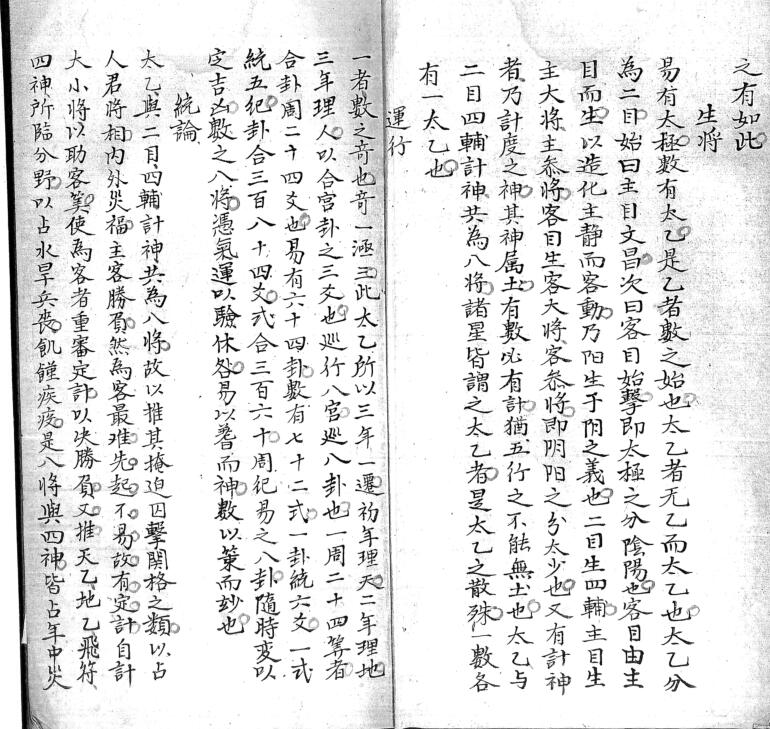 之有如此
生将
易有太極數有太乙是乙者數之始也太乙者无乙而太乙也太乙分
為二目始曰主目文昌次曰客目始擊即太極之分陰陽也客目由主
目而生以造化主静而客動乃阳生于阴之義也二目生四輔主目生
主大将主叅将客目生客大将客叅将即阴阳之分太少也又有計神
者乃計度之神其神属土有數必有計猶五行之不能無土也太乙与
二目四輔計神共為八将諸星皆謂之太乙者是太乙之散殊一數各
有一太乙也
運行
一者數之奇也奇一涵三此太乙所以三年一遷初年理天二年理地
三年理人以合宫卦之三爻也巡行八宫巡八卦也一周二十四筭者
合卦周二十四爻也易有六十四卦數有七十二式一卦統六爻一式
統五纪卦合三百八十四爻式合三百六十周纪易之八卦隨時变以
定吉凶數之八将憑氣運以驗休咎易以蓍而神數以策而妙也
統論
太乙與二目四輔計神共為八将故以推其掩迫囚擊関格之類以占
人君将相内外災福主客勝負然為客最难先起不易故有定計自計
大小将以助客筭使為客者重審定計以决勝負又推天乙地乙飛符
四神所臨分野以占水旱兵喪飢饉疾疫是八将與四神皆占年中災